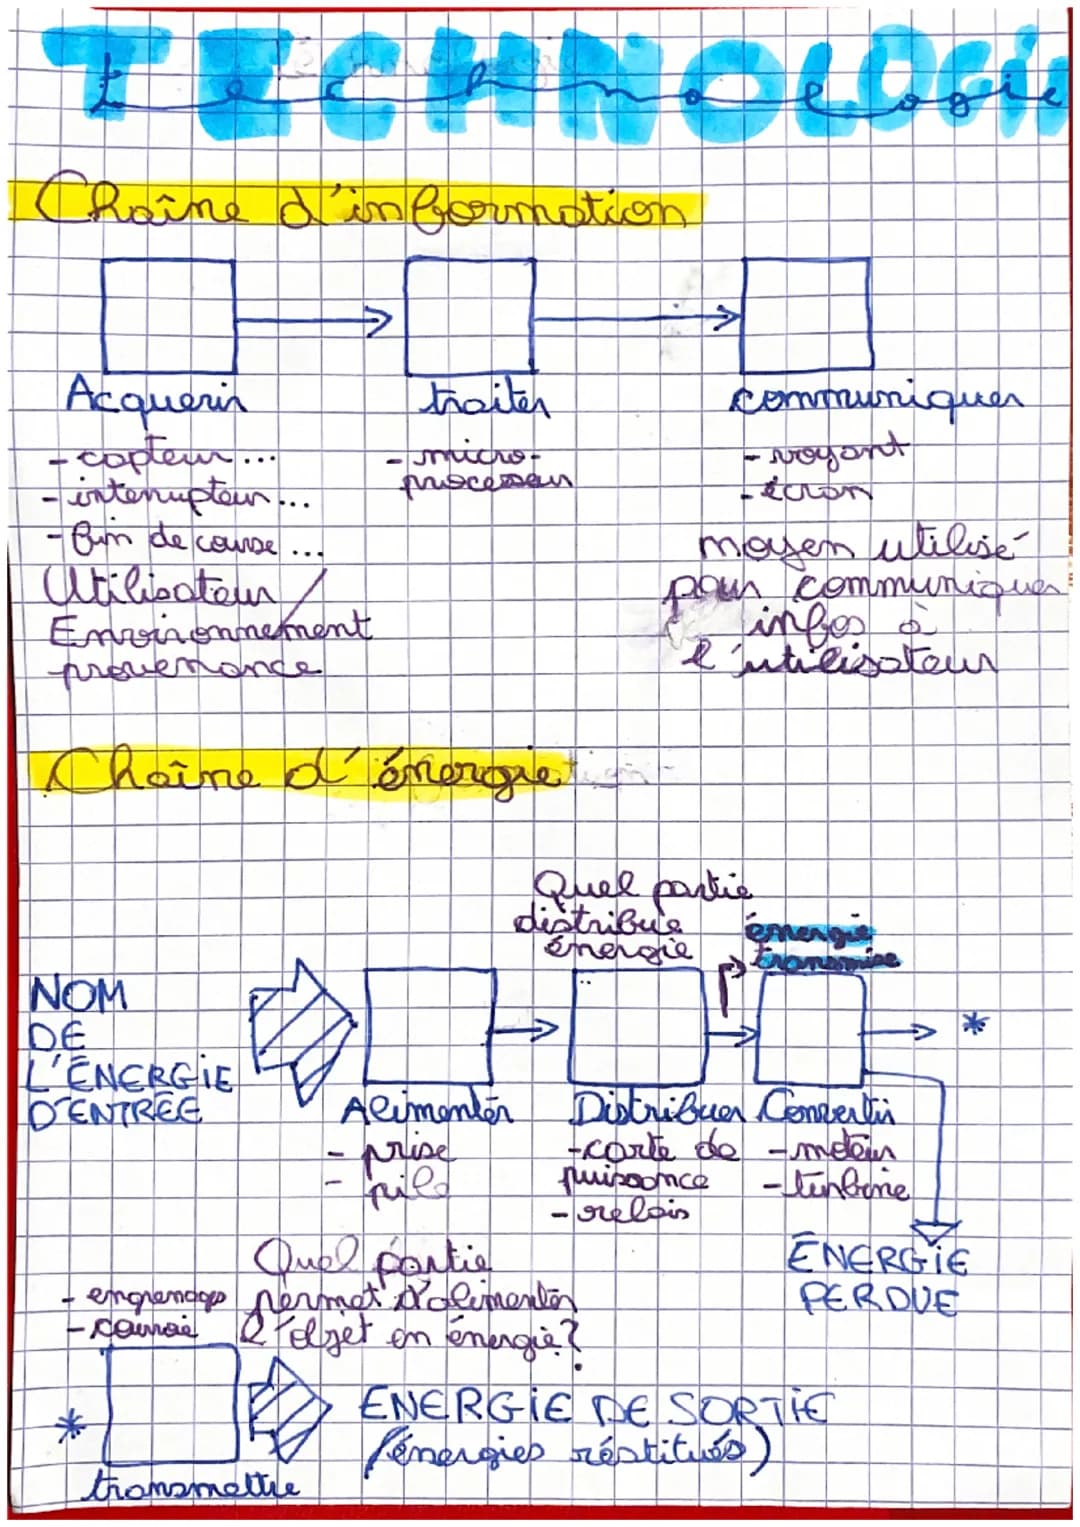 TECHNOLOGIE
technologie
Chaîne d'information
Acquerir
traiter
communiquer
- capteur...
- interrupteur...
- fin de course...
Utilisateur/
Environnement
provenance
- micro-
processeur
- voyant
- écran
moyen utilisé
pour communiquer
infos à
l'utilisateur
Chaîne d'énergie
Quel partie
distribue
énergie
énergie
transmise
NOM
DE
L'ÉNERGIE
D'ENTRÉE
*
Alimenter
- prise
- pile
Distribuer
- carte de
puissance
- relais
Convertir
- moteur
- turbine
ÉNERGIE
PERDUE
Quel partie
permet d'alimenter
l'objet en énergie?
- engrenages
- courroie
*
transmettre
ENERGIE DE SORTIE
(énergies réstitués)